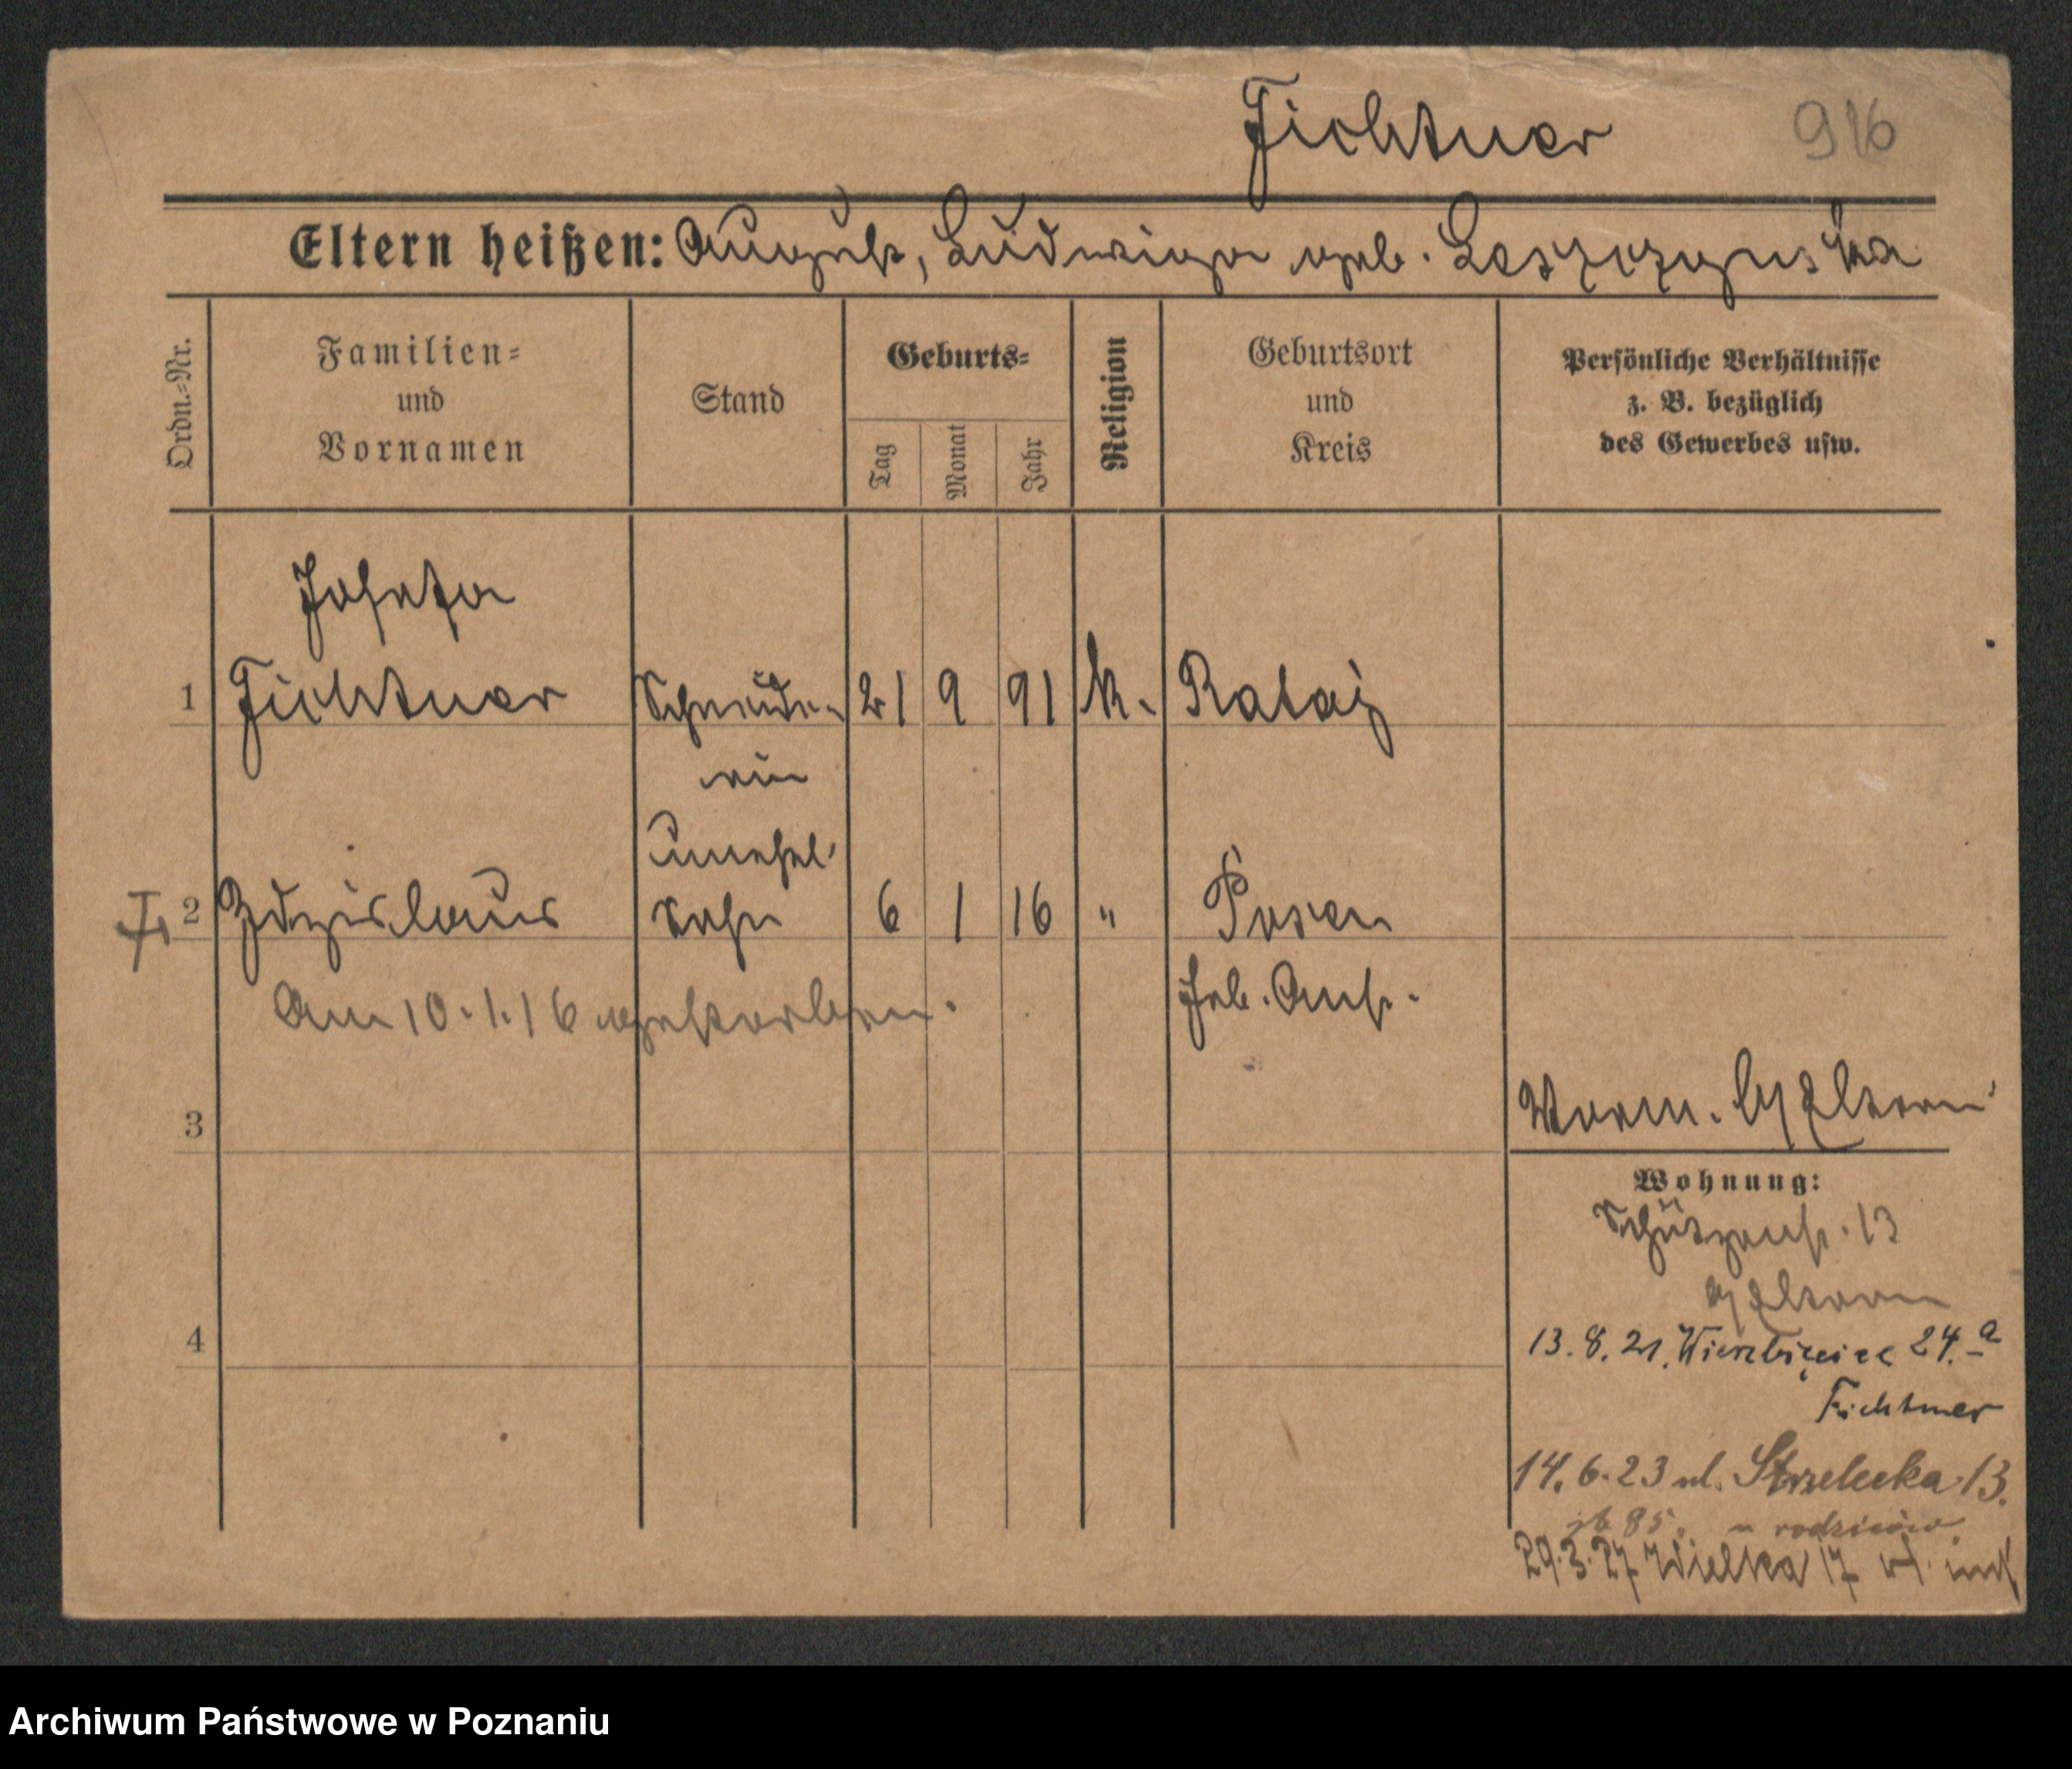 Fichtner 916
Eltern heißen: August, Ludwiga geb. Leszczynska
Ordn.=Nr.
Familien=
und
Vornamen
Stand
Geburts=
Tag
Monat
Jahr
Religion
Geburtsort
und
Kreis
Persönliche Verhältnisse
z. B. bezüglich
des Gewerbes usw.
Josefa
1 Fichtner Schneide- 21 9 91 k. Rataj
rin
unehel.
2 Zdzislaus Sohn 6 1 16 " Posen
Am 10.1.16 gestorben. Heb. Anst.
3
Vorm. b/ Eltern
Wohnung:
Schützenstr. 13
b/ Eltern
4
13.8.21. Wierzbięcice 24.a
Fichtner
14.6.23 ul. Strzelecka 13.
u rodziców
29.3.27 Wielka 17
Archiwum Państwowe w Poznaniu